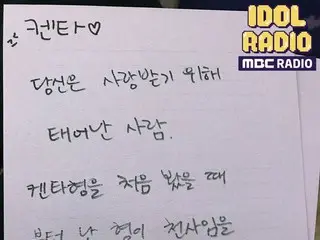 켄타♡
IDOL
RADIO
MBC RADIO
당신은 사랑받기 위해
태어난 사람.
켄타형을 처음 봤을 때
부터 난 형이 천사임을